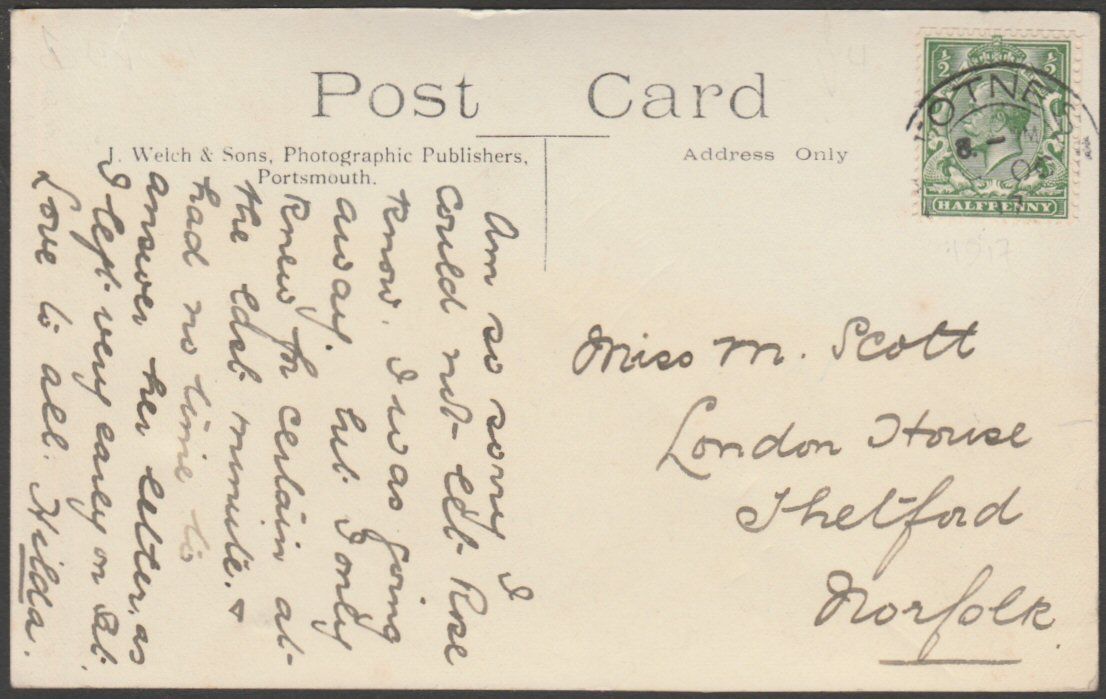 Post Card
J. Welch & Sons, Photographic Publishers,
Portsmouth.
Address Only
½ ½
HALFPENNY
OTNES
8. M
1917
Am so sorry I
could not let Rose
know. I was going
away but I only
knew for certain at
the last minute. &
had no time to
answer her letter, as
I left very early on Sat.
Love to all. Hilda.
Miss M. Scott
London House
Thetford
Norfolk